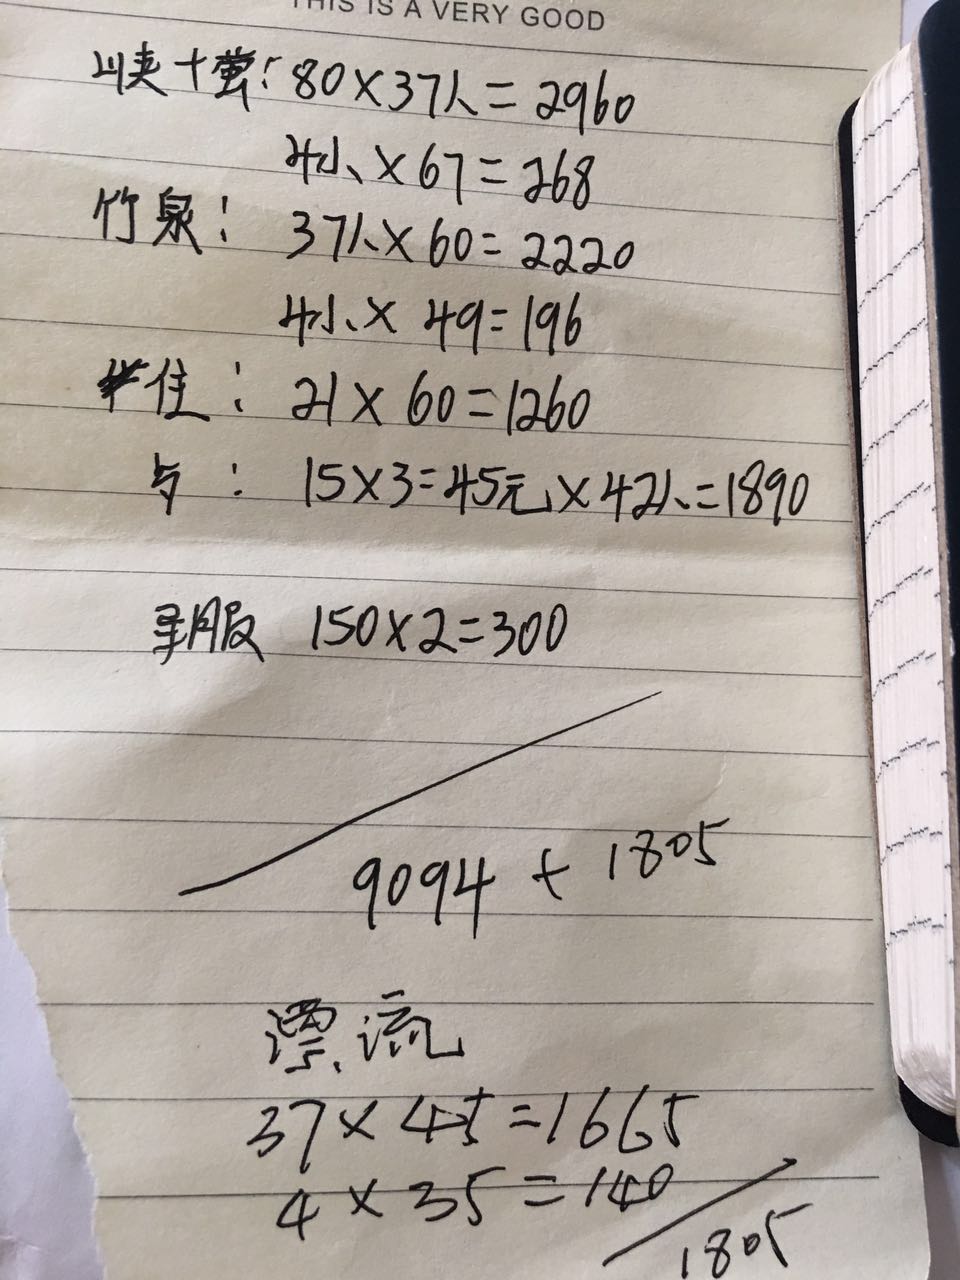 THIS IS A VERY GOOD
峡+萤:80×37人=2960
4小×67=268
竹泉:37人×60=2220
4小×49=196
住:21×60=1260
15×3=45元×42人=1890
服 150×2=300
9094+1805
漂流
37×45=1665
4×35=140
1805